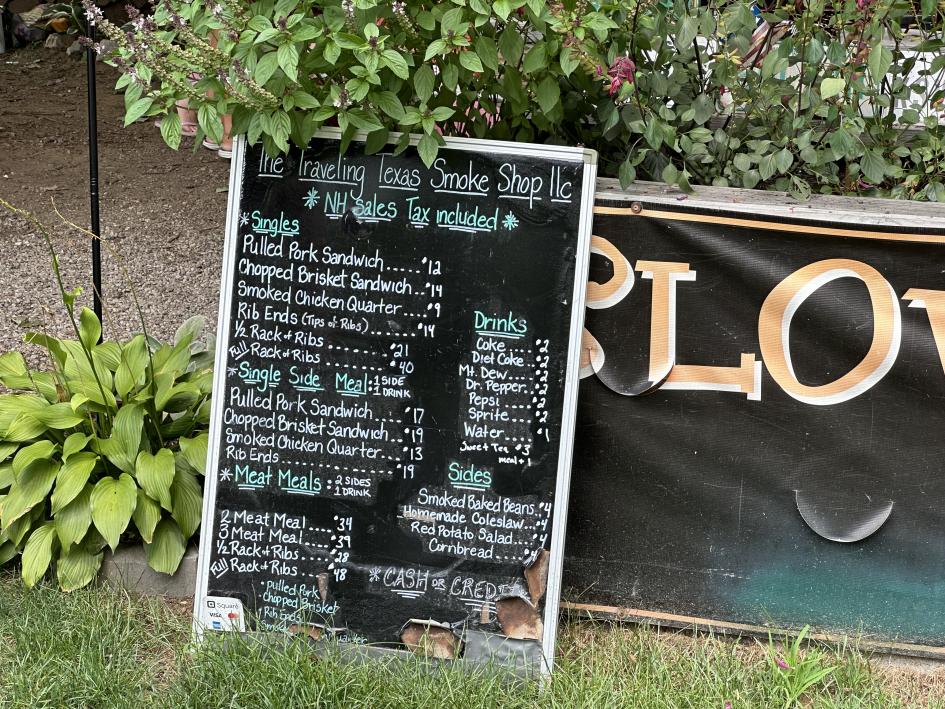 The Traveling Texas Smoke Shop llc
* NH Sales Tax included *
* Singles
Pulled Pork Sandwich......$12
Chopped Brisket Sandwich...$14
Smoked Chicken Quarter....$9
Rib Ends (Tips of Ribs)........$14
1/2 Rack of Ribs ........$21
Full Rack of Ribs ........$40
* Single Side Meal: 1 SIDE
1 DRINK
Pulled Pork Sandwich.....$17
Chopped Brisket Sandwich...$19
Smoked Chicken Quarter...$13
Rib Ends..................$19
* Meat Meals: 2 SIDES
1 DRINK
2 Meat Meal....$34
3 Meat Meal....$39
1/2 Rack of Ribs....$28
Full Rack of Ribs....$48
• Pulled Pork
Chopped Brisket
Rib Ends
Drinks
Coke...$2
Diet Coke...$2
Mt. Dew....$2
Dr. Pepper.$2
Pepsi.....$2
Sprite....$2
Water....$1
Sweet Tea $3
meal + 1
Sides
Smoked Baked Beans.$4
Homemade Coleslaw..$4
Red Potato Salad....$4
Cornbread
* CASH or CREDIT
Square
VISA
SLOW